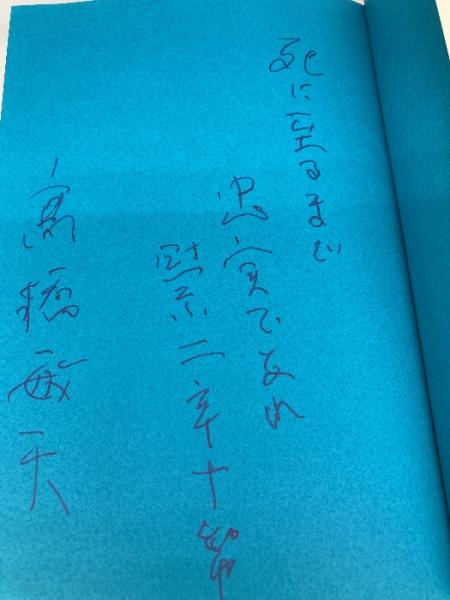 死に至るまで
忠実であれ
黙示二章十節
高橋敏夫